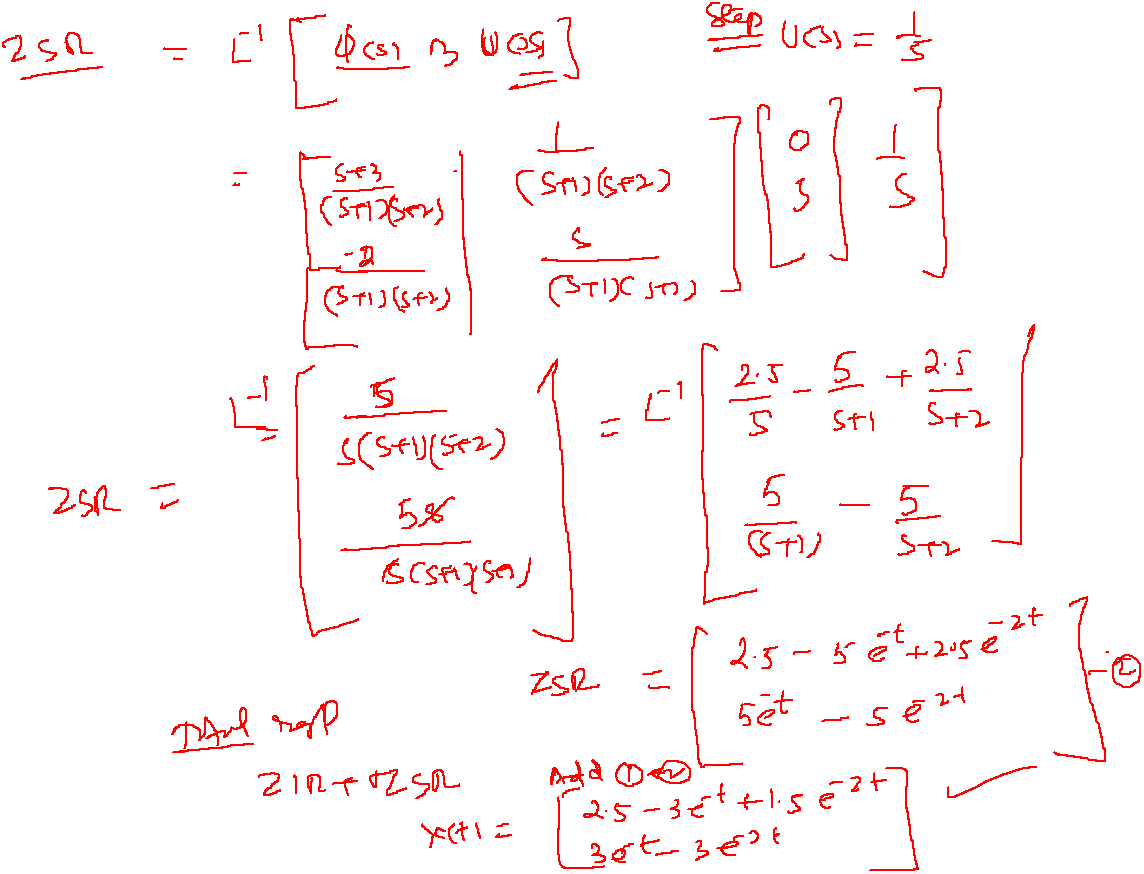 ZSR = L⁻¹ [ φ(s) B U(s) ] Step U(s) = 1/s
= [ s+3/(s+1)(s+2) 1/(s+1)(s+2) ; -2/(s+1)(s+2) s/(s+1)(s+2) ] [ 0 ; 5 ] [ 1/s ]
ZSR = L⁻¹ [ 5/s(s+1)(s+2) ; 5s/s(s+1)(s+2) ] = L⁻¹ [ 2.5/s - 5/s+1 + 2.5/s+2 ; 5/(s+1) - 5/s+2 ]
ZSR = [ 2.5 - 5e^-t + 2.5e^-2t ; 5e^-t - 5e^-2t ] - ②
Total resp
ZIR + ZSR Add ① & ②
x(t) = [ 2.5 - 3e^-t + 1.5e^-2t ; 3e^-t - 3e^-2t ]